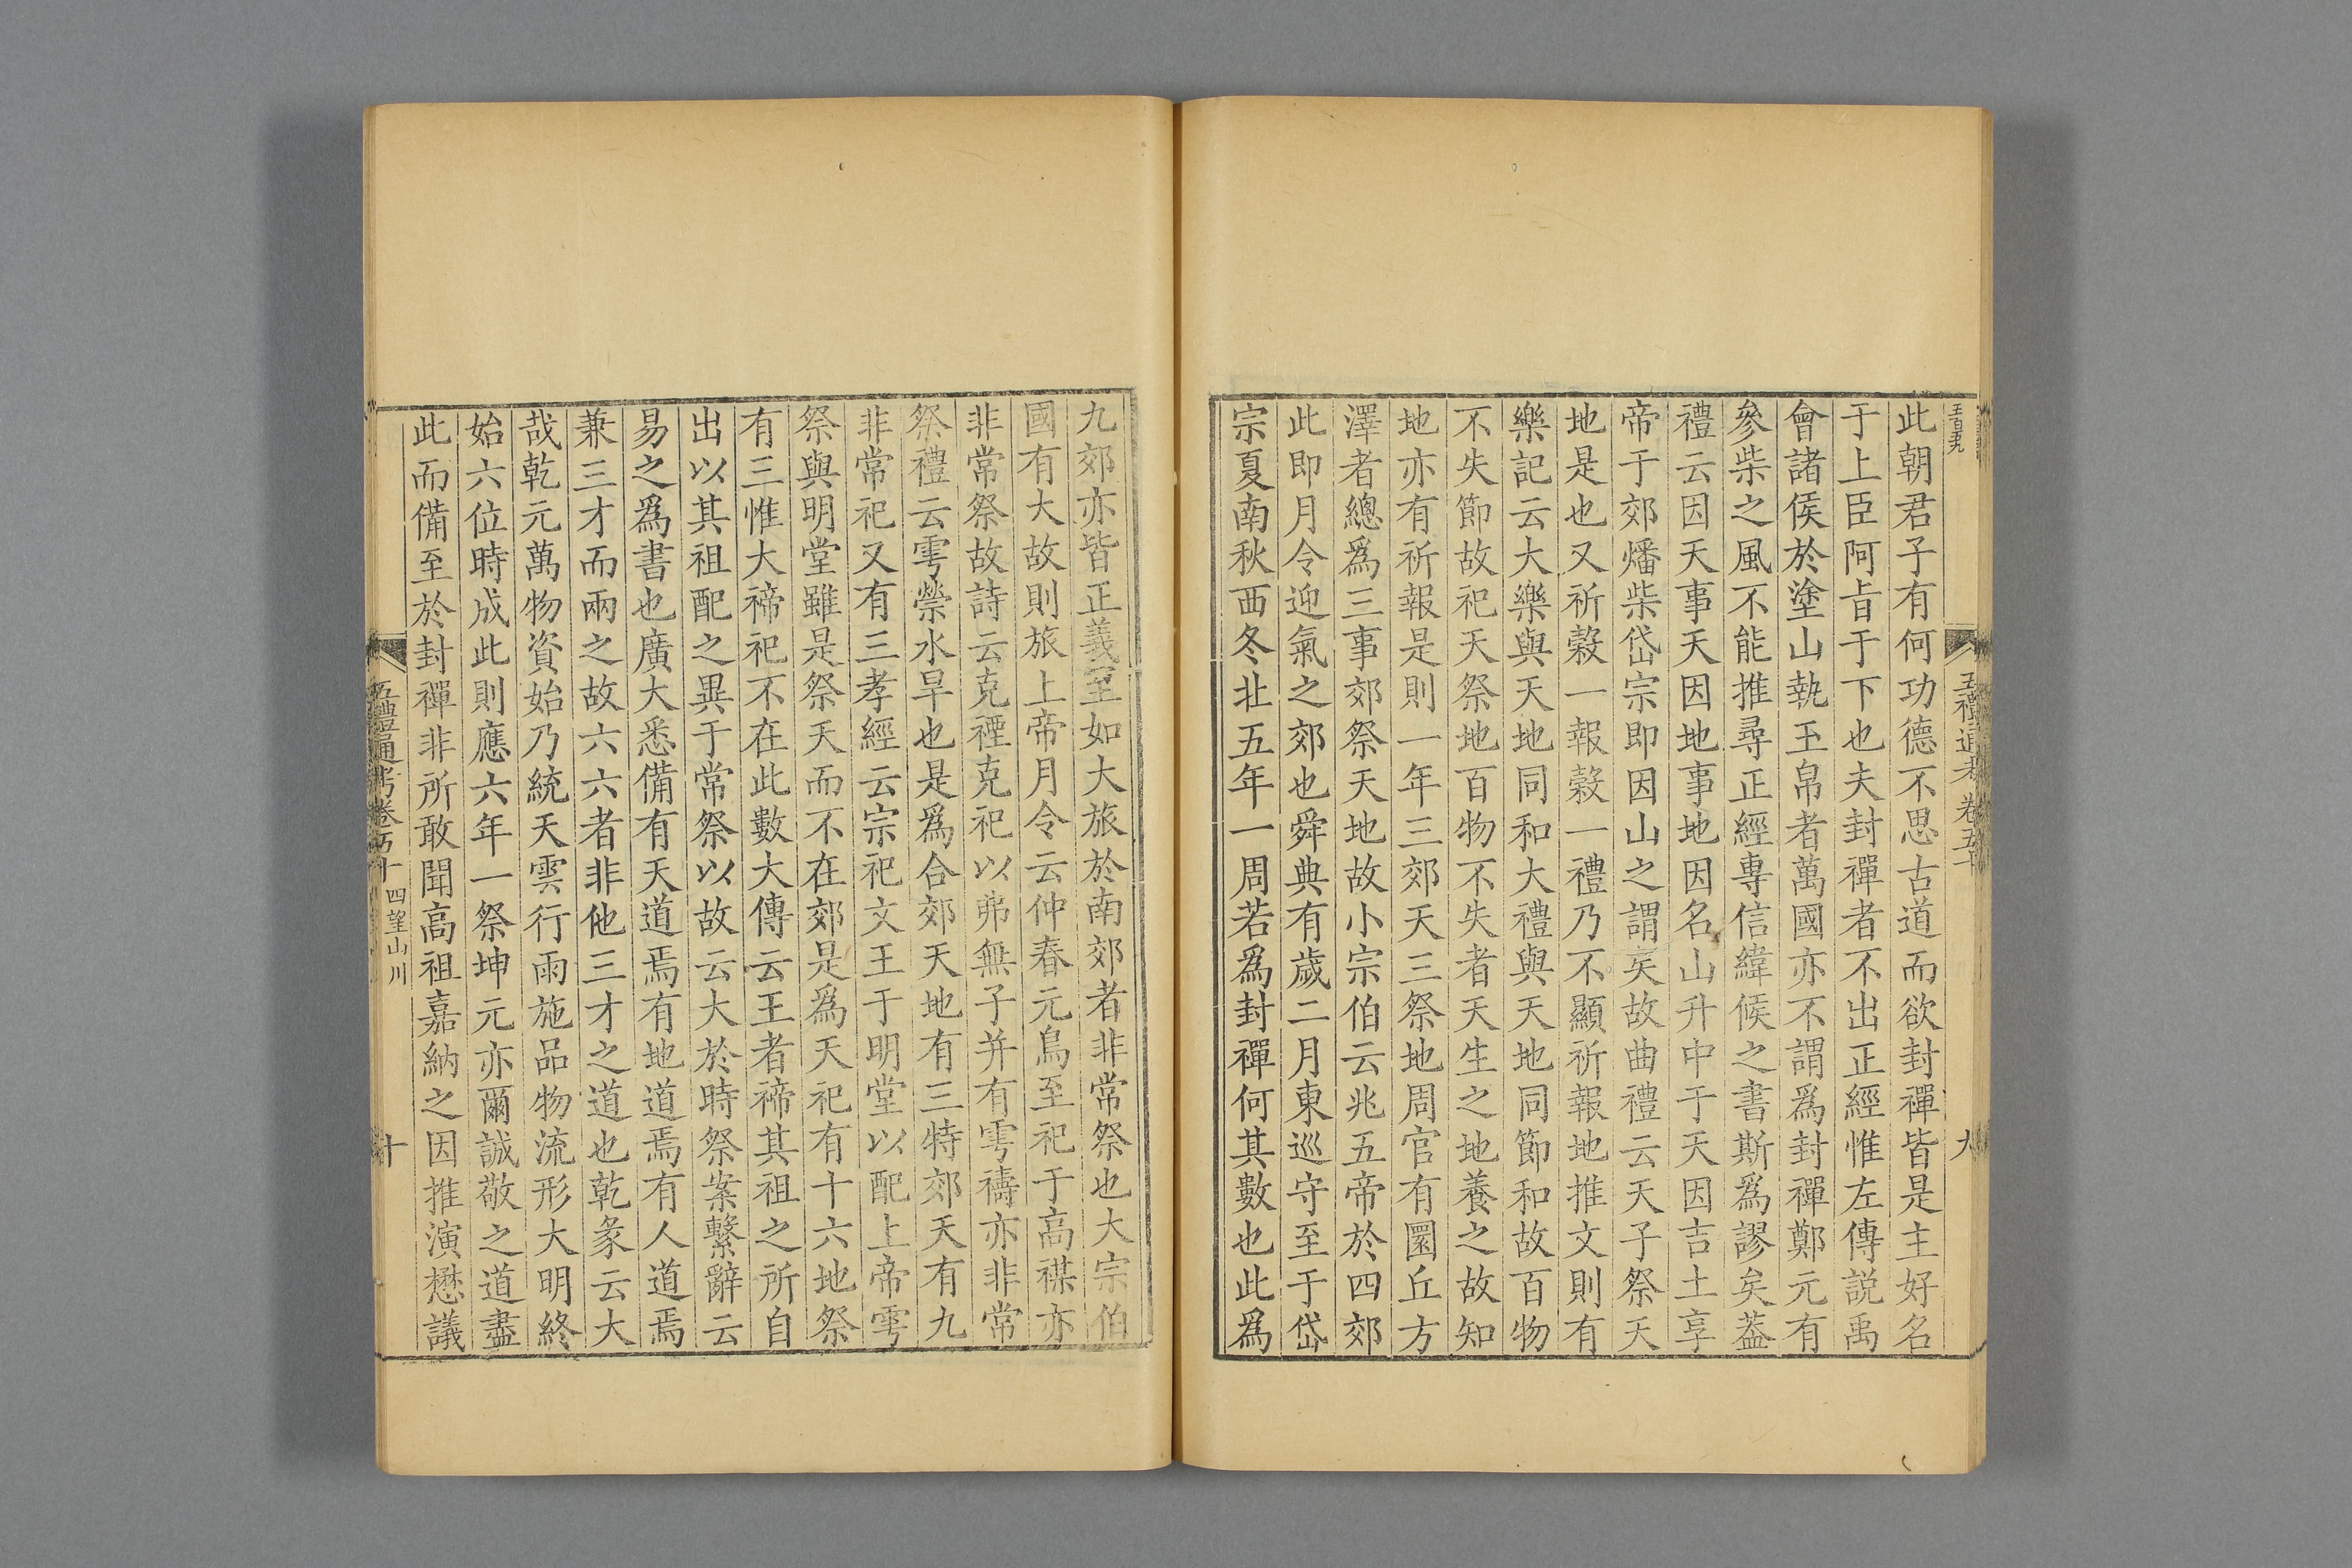 五禮通考 卷五十
九
此朝君子有何功德不思古道而欲封禪皆是主好名
于上臣阿旨于下也夫封禪者不出正經惟左傳說禹
會諸侯於塗山執玉帛者萬國亦不謂爲封禪鄭元有
參柴之風不能推尋正經專信緯候之書斯爲謬矣葢
禮云因天事天因地事地因名山升中于天因吉土享
帝于郊燔柴岱宗即因山之謂矣故曲禮云天子祭天
地是也又祈穀一報穀一禮乃不顯祈報地推文則有
樂記云大樂與天地同和大禮與天地同節和故百物
不失節故祀天祭地百物不失者天生之地養之故知
地亦有祈報是則一年三郊天三祭地周官有圜丘方
澤者總爲三事郊祭天地故小宗伯云兆五帝於四郊
此即月令迎氣之郊也舜典有歲二月東巡守至于岱
宗夏南秋西冬北五年一周若爲封禪何其數也此爲
九郊亦皆正義至如大旅於南郊者非常祭也大宗伯
國有大故則旅上帝月令云仲春元鳥至祀于高禖亦
非常祭故詩云克禋克祀以弗無子并有雩禱亦非常
祭禮云雩禜水旱也是爲合郊天地有三特郊天有九
非常祀又有三孝經云宗祀文王于明堂以配上帝雩
祭與明堂雖是祭天而不在郊是爲天祀有十六地祭
有三惟大禘祀不在此數大傳云王者禘其祖之所自
出以其祖配之異于常祭以故云大於時祭案繫辭云
易之爲書也廣大悉備有天道焉有地道焉有人道焉
兼三才而兩之故六六者非他三才之道也乾彖云大
哉乾元萬物資始乃統天雲行雨施品物流形大明終
始六位時成此則應六年一祭坤元亦爾誠敬之道盡
此而備至於封禪非所敢聞高祖嘉納之因推演懋議
五禮通考卷五十 四望山川
十